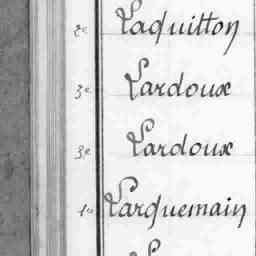 2e Laquitton
3e Lardoux
3e Lardoux
1e Larquemain